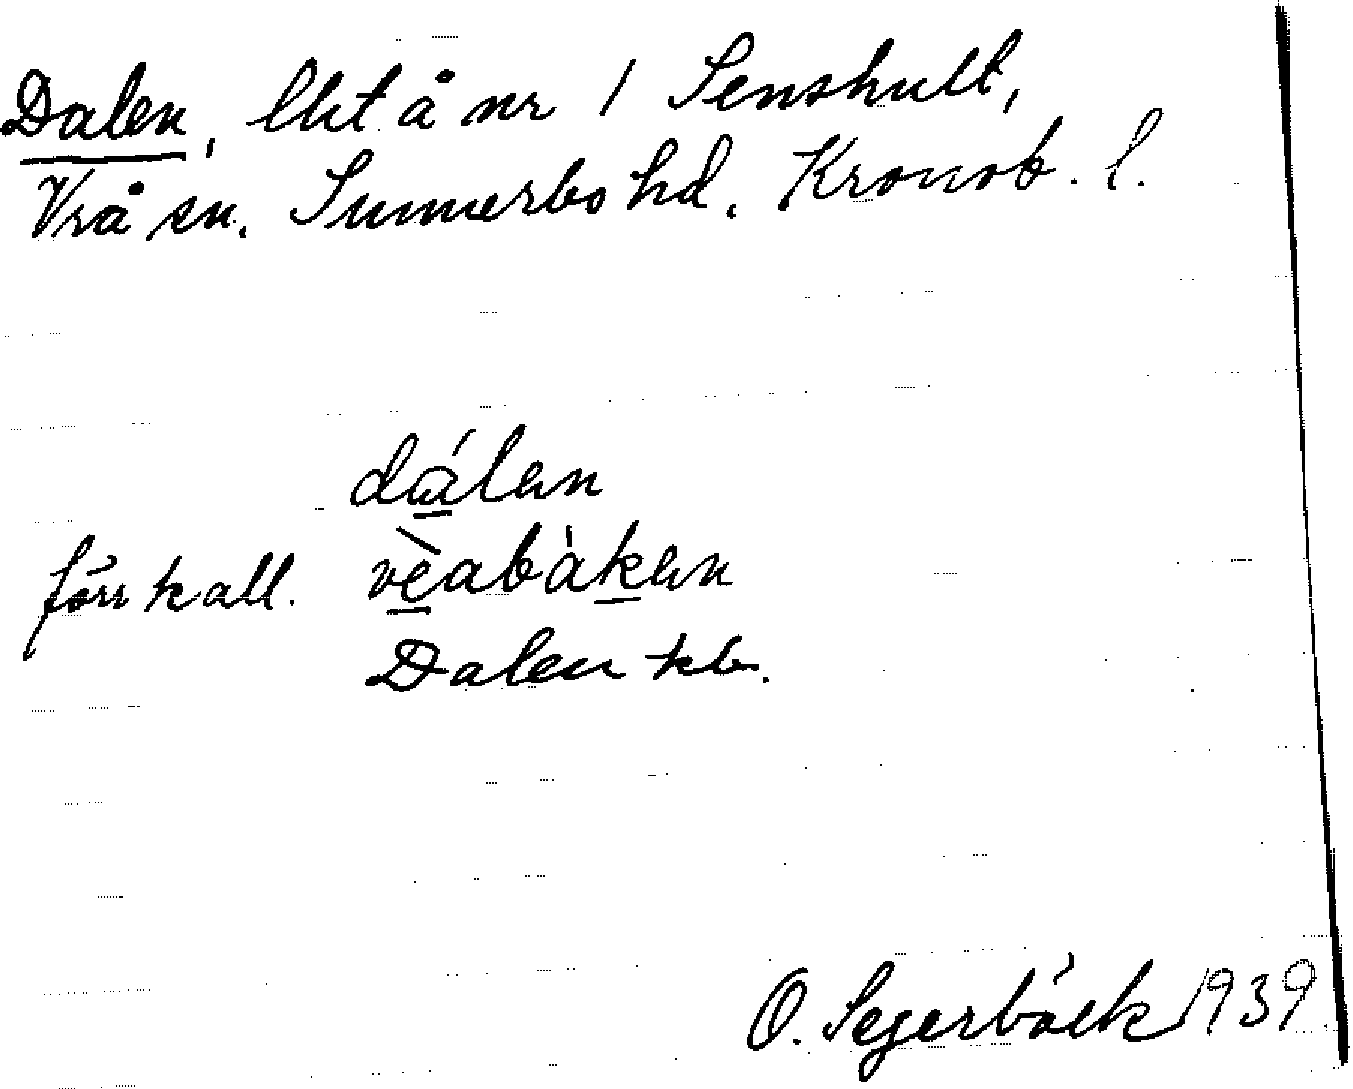 Dalen, lht å nr 1 Senshult,
Vrå sn. Sunnerbo hd. Kronob. l.
dálen
förr kall. vèabàken
Dalen kb.
O. Segerbäck 1939